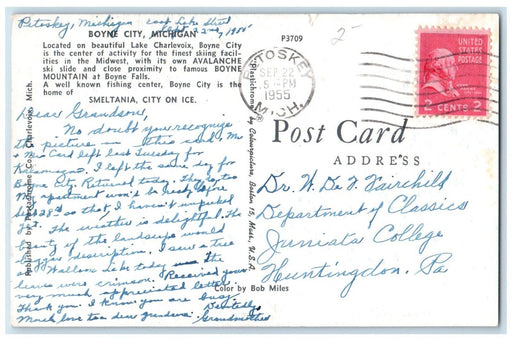 Petoskey, Michigan
BOYNE CITY, MICHIGAN
Located on beautiful Lake Charlevoix, Boyne City
is the center of activity for the finest skiing facili-
ties in the Midwest, with its own AVALANCHE
ski slide and close proximity to famous BOYNE
MOUNTAIN at Boyne Falls.
A well known fishing center, Boyne City is the
home of
SMELTANIA, CITY ON ICE.
Dear Grandson,
No doubt you recognize
the picture on this card. Mr
Mc Card left last Tuesday for
I left the same day for
Boyne City. Returned today. They
My apartment won't be ready before
Sept 28th so that I haven't unpacked
yet. The weather is delightful. The
beauty of the landscape would
beggar description. I saw a tree
Walloon Lake today the
leaves were crimson. Received your
very much appreciated letter.
Thank you. I know you are busy.
Much love too dear grandson. Devotedly,
Grandmother
Published by Penrod-Chrome Co., Charlevoix, Mich.
Plastichrome ® by Colourpicture, Boston 15, Mass., U.S.A.
P3709
2-
PETOSKEY
SEP 22
5 PM
1955
MICH.
UNITED
STATES
POSTAGE
2 CENTS 2
Post Card
ADDRESS
Dr. W. De F. Fairchild
Department of Classics
Juniata College
Huntingdon, Pa
Color by Bob Miles